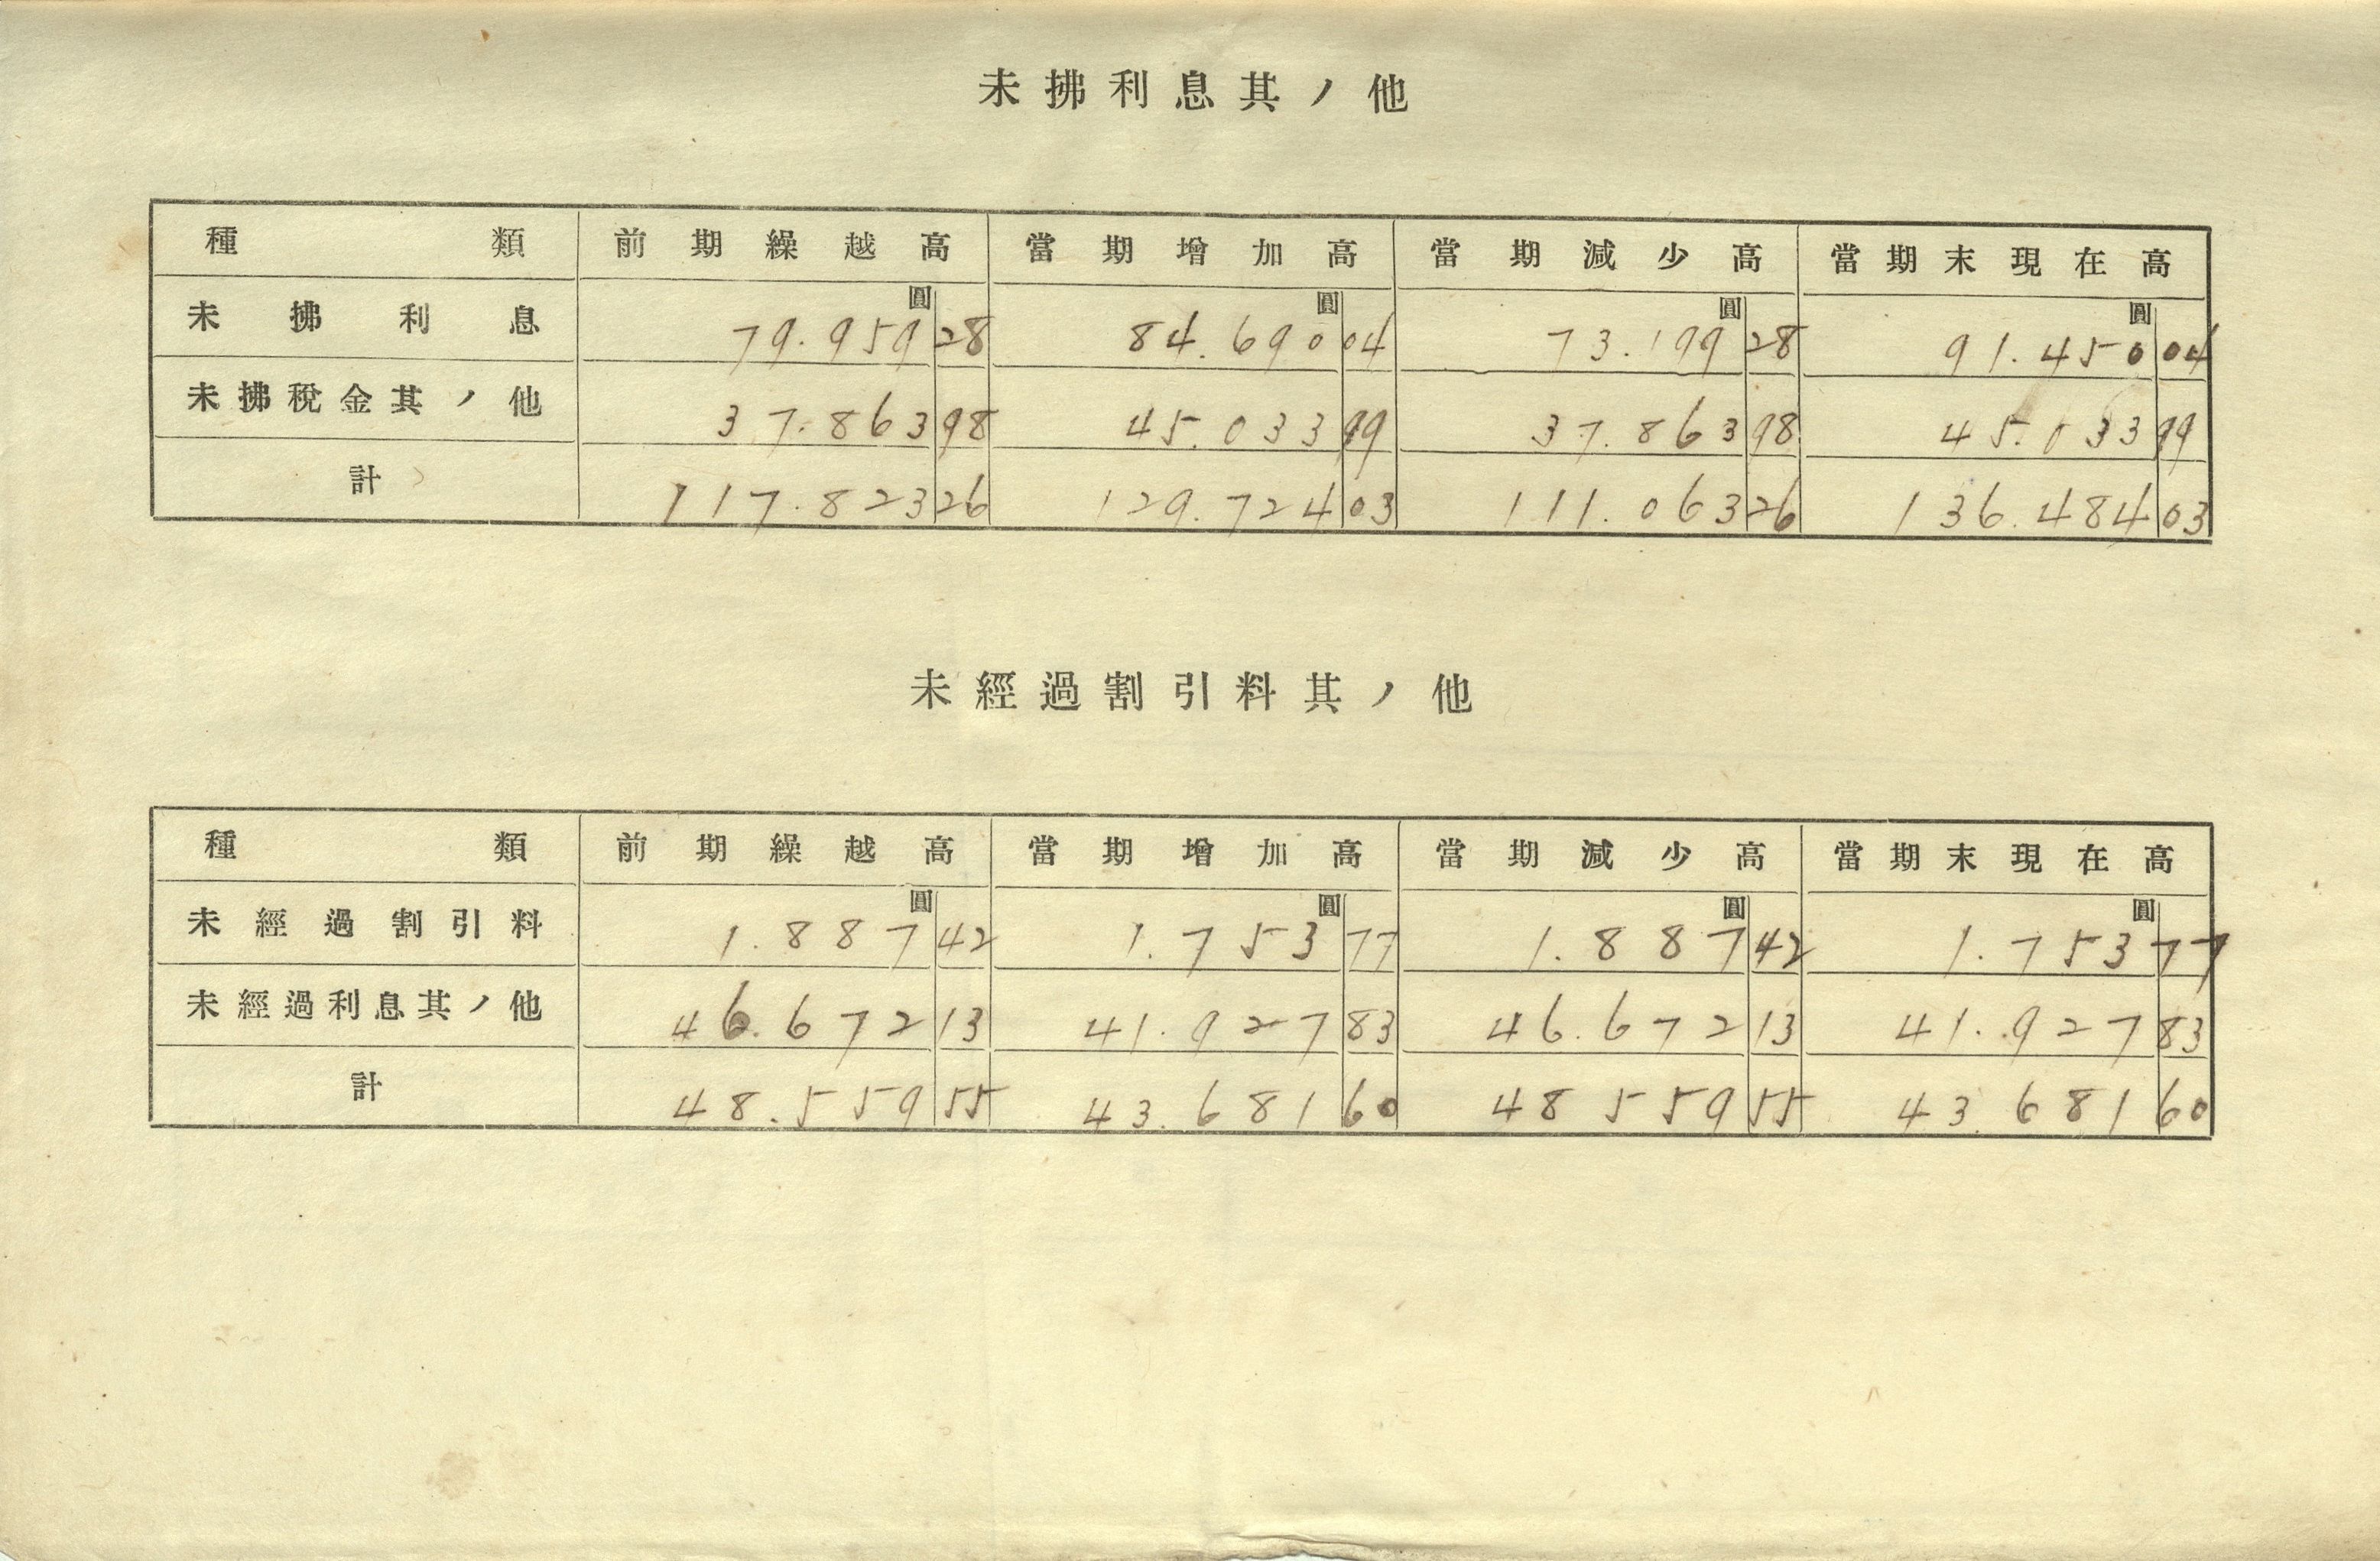 未拂利息其ノ他
種類 前期繰越高 當期增加高 當期減少高 當期末現在高
圓 圓 圓 圓
未拂利息 79.959 28 84.690 04 73.199 28 91.450 04
未拂稅金其ノ他 37.863 98 45.033 99 37.863 98 45.033 99
計 117.823 26 129.724 03 111.063 26 136.484 03
未經過割引料其ノ他
種類 前期繰越高 當期增加高 當期減少高 當期末現在高
圓 圓 圓 圓
未經過割引料 1.887 42 1.753 77 1.887 42 1.753 77
未經過利息其ノ他 46.672 13 41.927 83 46.672 13 41.927 83
計 48.559 55 43.681 60 48 559 55 43.681 60